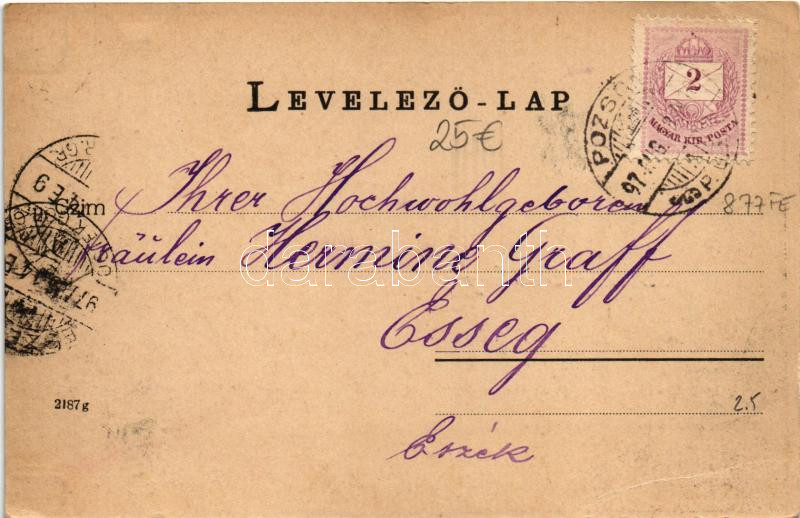 LEVELEZŐ-LAP
2
MAGYAR KIR. POSTA
POZSO
97
25€
Czim
Ihrer Hochwohlgeboren
877FE
Fräulein Hermine Graff
darabanth
Esseg
2187 g
2.5
Eszék